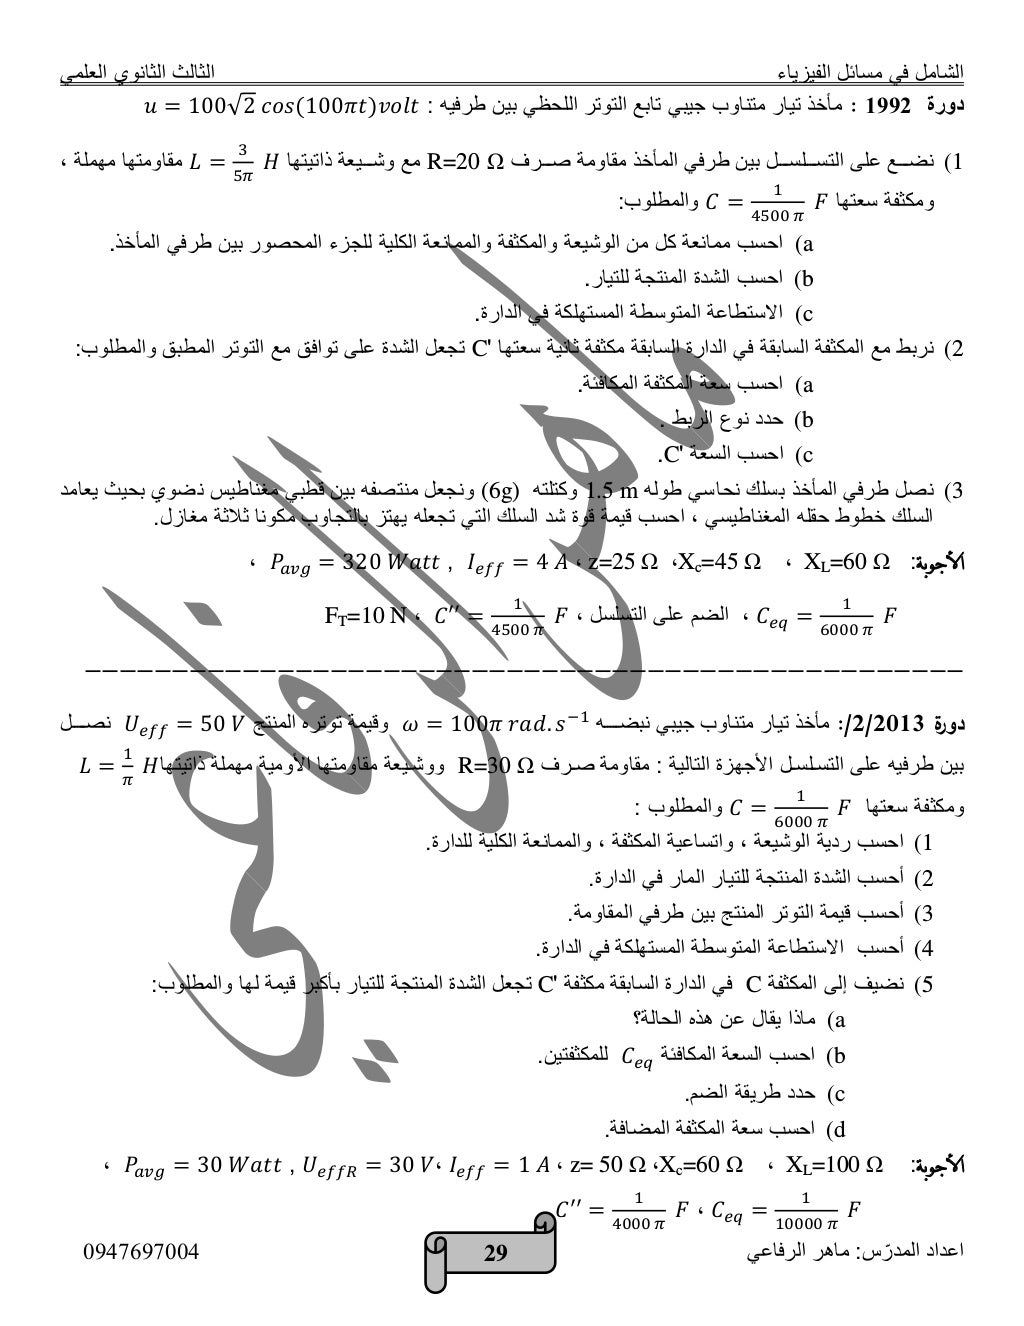 الشامل في مسائل الفيزياء الثالث الثانوي العلمي
دورة 1992 : مأخذ تيار متناوب جيبي تابع التوتر اللحظي بين طرفيه : u = 100√2 cos(100πt)volt
1) نضع على التسلسل بين طرفي المأخذ مقاومة صرف R=20 Ω مع وشيعة ذاتيتها L = 3/5π H مقاومتها مهملة ،
ومكثفة سعتها C = 1/4500 π F والمطلوب:
a) احسب ممانعة كل من الوشيعة والمكثفة والممانعة الكلية للجزء المحصور بين طرفي المأخذ.
b) احسب الشدة المنتجة للتيار.
c) الاستطاعة المتوسطة المستهلكة في الدارة.
2) نربط مع المكثفة السابقة في الدارة السابقة مكثفة ثانية سعتها C' تجعل الشدة على توافق مع التوتر المطبق والمطلوب:
a) احسب سعة المكثفة المكافئة.
b) حدد نوع الربط .
c) احسب السعة C'.
3) نصل طرفي المأخذ بسلك نحاسي طوله 1.5 m وكتلته (6g) ونجعل منتصفه بين قطبي مغناطيس نضوي بحيث يعامد
السلك خطوط حقله المغناطيسي ، احسب قيمة قوة شد السلك التي تجعله يهتز بالتجاوب مكونا ثلاثة مغازل.
الأجوبة: XL=60 Ω ، Xc=45 Ω، z=25 Ω ، Ieff = 4 A , Pavg = 320 Watt ،
Ceq = 1/6000 π F ، الضم على التسلسل ، C′′ = 1/4500 π F ، FT=10 N
دورة 2013/2/: مأخذ تيار متناوب جيبي نبضه ω = 100π rad.s−1 وقيمة توتره المنتج Ueff = 50 V نصل
بين طرفيه على التسلسل الأجهزة التالية : مقاومة صرف R=30 Ω ووشيعة مقاومتها الأومية مهملة ذاتيتها L = 1/π H
ومكثفة سعتها C = 1/6000 π F والمطلوب :
1) احسب ردية الوشيعة ، واتساعية المكثفة ، والممانعة الكلية للدارة.
2) أحسب الشدة المنتجة للتيار المار في الدارة.
3) أحسب قيمة التوتر المنتج بين طرفي المقاومة.
4) أحسب الاستطاعة المتوسطة المستهلكة في الدارة.
5) نضيف إلى المكثفة C في الدارة السابقة مكثفة C' تجعل الشدة المنتجة للتيار بأكبر قيمة لها والمطلوب:
a) ماذا يقال عن هذه الحالة؟
b) احسب السعة المكافئة Ceq للمكثفتين.
c) حدد طريقة الضم.
d) احسب سعة المكثفة المضافة.
الأجوبة: XL=100 Ω ، Xc=60 Ω، z= 50 Ω ، Ieff = 1 A ، UeffR = 30 V , Pavg = 30 Watt ،
Ceq = 1/10000 π F ، C′′ = 1/4000 π F
اعداد المدرّس: ماهر الرفاعي 29 0947697004
ماهر الرفاعي